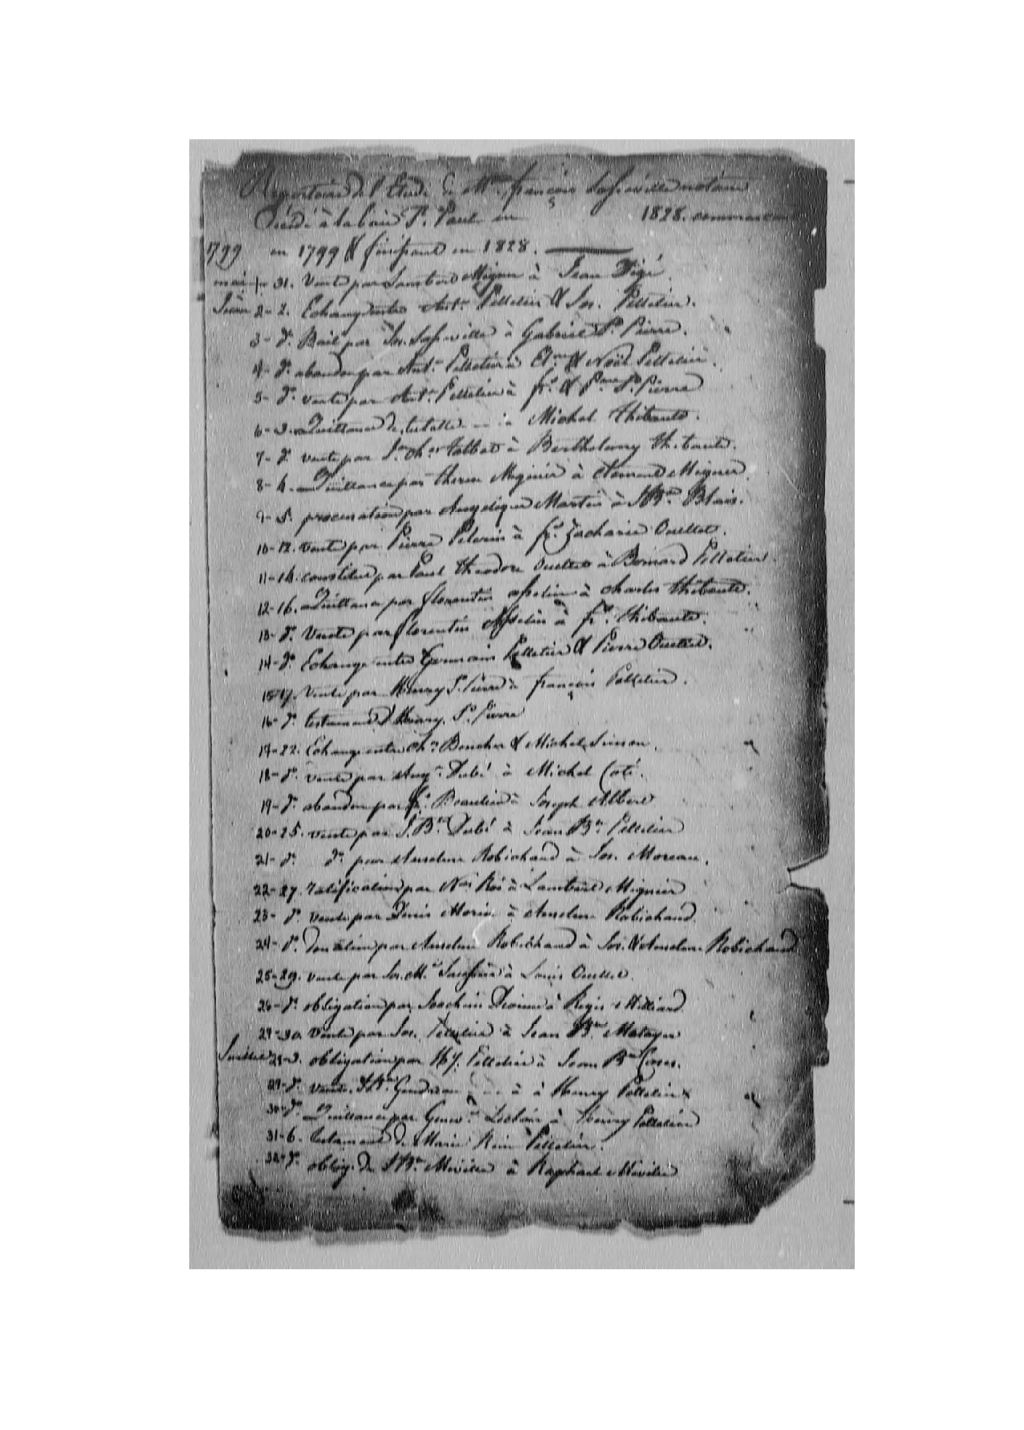 Repertoire de l'Etude de Mtre. françois notaire
Décédé à la baie St. Paul en 1828. commencant
1799 en 1799 & finissant en 1828.
mai 1- 31. Vente par Lambert Mignier à Jean Digé.
Juin 2- 2. Echange entre Ant. Pelletier & Jos. Pelletier.
3- do. Bail par Jos. à Gabriel St. Pierre.
4- do. abandon par Ant. Pelletier à & Noël Pelletier.
5- do. vente par Ant. Pelletier à fs. & St. Pierre
6- 3. Quittance de tutelle à Michel Thibault.
7- do. vente par Chs. Talbot à Barthelemy Thibault.
8- 4. Quittance par Therese Mignier à Clement Mignier.
9- 5. procuration par Angelique Martin à J Bte. Blais.
10- 12. vente par Pierre Pelerin à fs. Zacharie Ouellet.
11- 14. constitut. par Paul Theodore Ouellet à Bernard Pelletier.
12- 16. Quittance par florentin asselin à charles Thibault.
13- do. Vente par florentin Asselin à fs. Thibault.
14- do. Echange entre Germain Pelletier & Pierre Ouellet.
15- 17. Vente par Henry St. Pierre à françois Pelletier.
16- do. testament d'Henry St. Pierre
17- 22. Echange entre Chs. Boucher & Michel Simon.
18- do. vente par Aug. Dubé à Michel Coté.
19- do. abandon par fs. Beaulieu à Joseph Albert
20- 25. vente par J. Bte. Dubé à Jean Bte. Pelletier
21- do. do. par Anselme Robichaud à Jos. Moreau.
22- 27. ratification par Roi à Lambert Mignier
23- do. vente par Denis Morin à Anselme Robichaud.
24- do. donation par Anselme Robichaud à Jos. & Anselme Robichaud
25- 29. vente par Jos. M. à Louis Ouellet.
26- do. obligation par Joachim à Regis
27- 30. Vente par Jos. Pelletier à Jean Bte. Metayer
Juillet 28- 3. obligation par Hy. Pelletier à Jean Bte.
29- do. vente. J Bte. Gendreau à à Henry Pelletier
30- do. Quittance par Genev. à Henry Pelletier
31- 6. testament de Marie Pelletier.
32- do. oblig. de J Bte. Miville à Raphael Miville